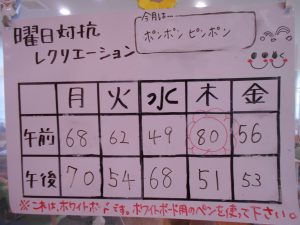 曜日対抗
レクリエーション
今月は…
ポンポン ピンポン
月 火 水 木 金
午前 68 62 49 80 56
午後 70 54 68 51 53
※これは、ホワイトボードです。ホワイトボード用のペンを使って下さい。